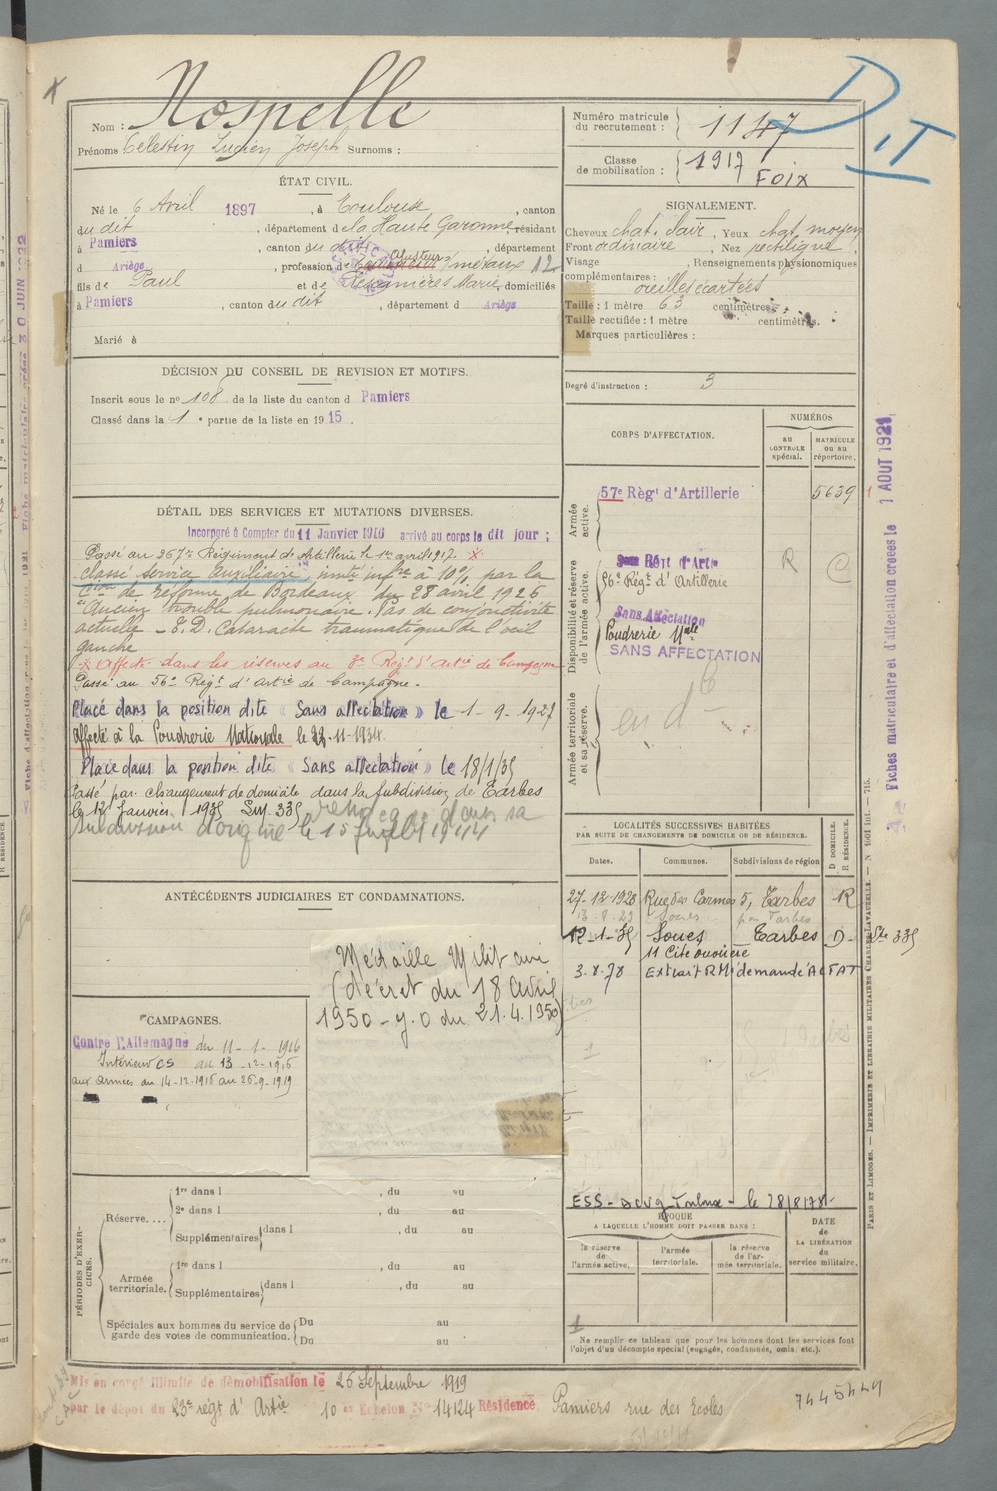 Nom : Nospelle
Prénoms Célestin Lucien Joseph Surnoms :
Numéro matricule du recrutement : 1147
Classe de mobilisation : 1917
FOIX
DIT
ÉTAT CIVIL.
Né le 6 Avril 1897, à Toulouse, canton
du dit, département de la Haute Garonne, résidant
à Pamiers, canton du dit, département
d Ariège, profession d ajusteur s/ métaux 12
fils de Paul et de Marie domiciliés
à Pamiers, canton du dit, département d Ariège
Marié à
SIGNALEMENT.
Cheveux chat. clair, Yeux chat. moyen
Front ordinaire, Nez rectiligne
Visage , Renseignements physionomiques
complémentaires :
oreilles écartées
Taille : 1 mètre 63 centimètres.
Taille rectifiée : 1 mètre centimètres.
Marques particulières :
Degré d'instruction : 3
DÉCISION DU CONSEIL DE REVISION ET MOTIFS.
Inscrit sous le no 108 de la liste du canton d Pamiers
Classé dans la 1e partie de la liste en 1915.
DÉTAIL DES SERVICES ET MUTATIONS DIVERSES.
Incorporé à Compter du 11 Janvier 1916 arrivé au corps le dit jour ;
Passé au 267e Régiment de Artillerie le 1er avril 1917. X
Classé service auxiliaire, invté infre à 10% par la
Cion de réforme de Bordeaux du 28 avril 1926
"Ancien trouble pulmonaire. Pas de conjonctivite
actuelle - E.D. Cataracte traumatique de l'oeil
gauche
X Affecté dans les réserves au 3e Regt d'Artie de Campagne
Passé au 56e Régt d'Artie de Campagne.
Placé dans la position dite « Sans affectation » le 1-9-1927
affecté à la Poudrerie Nationale le 22-11-1934.
Placé dans la position dite « Sans affectation » le 18/1/35
Passé par changement de domicile dans la subdivision de Tarbes
le 12 Janvier 1935 Sm 335 dans sa
subdivision d'origine le 15 1944
CORPS D'AFFECTATION.
NUMÉROS
au CONTROLE spécial.
MATRICULE ou au répertoire.
Armée active.
57e Régt d'Artillerie
5639
Disponibilité et réserve de l'armée active.
Régt d'Artie
R C
56e Régt d'Artillerie
Sans Affectation
Poudrerie Nale
SANS AFFECTATION
Armée territoriale et sa réserve.
Fiches matriculaire et d'affectation créées le 1 AOUT 1921
LOCALITÉS SUCCESSIVES HABITÉES
PAR SUITE DE CHANGEMENTS DE DOMICILE OU DE RÉSIDENCE.
Dates. Communes. Subdivisions de région D DOMICILE. R RÉSIDENCE.
27-12-1928 Rue des Carmes 5, Tarbes R
13-8-29 Soues par Tarbes
12-1-35 Soues Tarbes D- Ste 335
11 Cité ouvrière
3-8-78 Extrait RM demande AC FAT
ESS - ACVG Toulouse - le 28/8/78
ANTÉCÉDENTS JUDICIAIRES ET CONDAMNATIONS.
Médaille Militaire
(décret du 18 avril
1950 - J.O du 21.4.1950)
CAMPAGNES.
Contre l'Allemagne du 11-1-1916
Intérieur CS au 13-12-1916
aux armées du 14-12-1916 au 26-9-1919
PÉRIODES D'EXERCICES.
Réserve....
1re dans l , du au
2e dans l , du au
Supplémentaires dans l , du au
Armée territoriale.
1re dans l , du au
Supplémentaires dans l , du au
Spéciales aux hommes du service de garde des voies de communication.
Du au
Du au
ÉPOQUE
A LAQUELLE L'HOMME DOIT PASSER DANS :
la réserve de l'armée active.
l'armée territoriale.
la réserve de l'armée territoriale.
DATE de LA LIBÉRATION du service militaire.
Ne remplir ce tableau que pour les hommes dont les services font
l'objet d'un décompte spécial (engagés, condamnés, omis, etc.).
PARIS ET LIMOGES. — IMPRIMERIE ET LIBRAIRIE MILITAIRES CHARLES-LAVAUZELLE. — N 1601 int. — 715.
Mis en congé illimité de démobilisation le 26 Septembre 1919
par le dépot du 23e régt d'Artie 10e Echelon No 14124 Résidence Pamiers rue des Ecoles